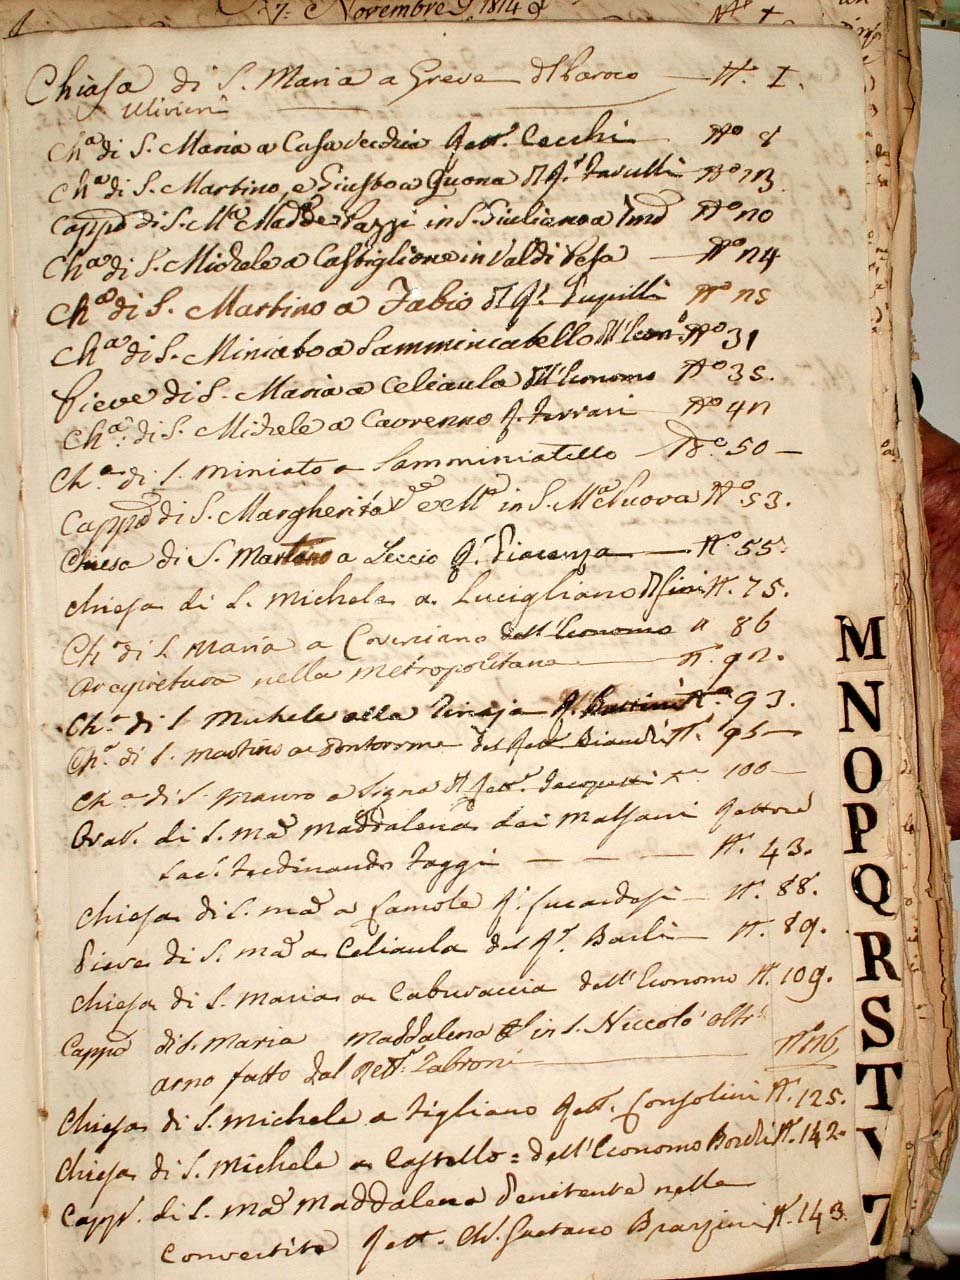 7. Novembre 1814
Chiesa di S. Maria a Greve d'Paroco N. I.
Ulivieri
Ch.a di S. Maria a Casavecchia Rett. Cecchi N.o 8
Ch.a di S. Martino, e Giusto a N.o
Capp.a di S. M.a Madd.a Pazzi in S. Giuliano a N.o
Ch.a di S. Michele a Castiglione in Val di Pesa N.o
Ch.a di S. Martino a N.o
Ch.a di S. Miniato a Samminiatello dell'Econ.o N.o 31
Pieve di S. Maria a Celiaula dell'Economo N.o 35.
Ch.a di S. Michele a Cavrenno R. Ferrari N.o
Ch.a di S. Miniato a Samminiatello N.o 50
Capp.a di S. Margherita in S. M.a Nuova N.o 53.
Chiesa di S. Martino a Leccio R. Piacenza N. 55.
Chiesa di S. Michele a Lucigliano N. 75.
Ch.a di S. Maria a Coverciano dell'Economo N 86
Arcipretura nella Metropolitana N. 92.
Ch.a di S. Michele alla N.o 93.
Ch.a di S. Martino a Pontorme del Rett. N. 95
Ch.a di S. Mauro a Signa Rett. Jacopetti N.o 100
Orat. di S. Ma. Maddalena dei Malsani Rettore
Sac. Ferdinando Faggi N. 43.
Chiesa di S. Ma. a Lamole R. N. 88.
Pieve di S. Ma. a Celiaula del R. Barli N. 89.
Chiesa di S. Maria a Cabuvaccia dell'Economo N. 109.
Capp.a di S. Maria Maddalena in S. Niccolò oltr'
arno fatto dal Rett. Zabroni
Chiesa di S. Michele a Tigliano Rett. Consolini N. 125.
Chiesa di S. Michele a Castello = dell'Economo N. 142.
Capp. di S. Ma. Maddalena Penitente nelle
Convertite Rett. Gaetano N. 143.
M
N
O
P
Q
R
S
T
V
Z